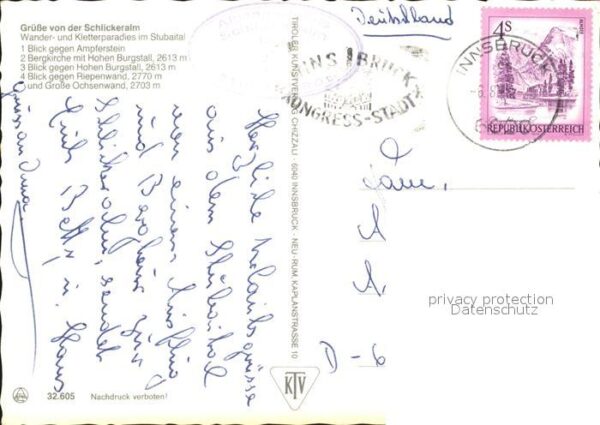 Grüße von der Schlickeralm
Wander- und Kletterparadies im Stubaital
1 Blick gegen Ampferstein
2 Bergkirche mit Hohen Burgstall, 2613 m
3 Blick gegen Hohen Burgstall, 2613 m
4 Blick gegen Riepenwand, 2770 m
und Große Ochsenwand, 2703 m
Herzliche Urlaubsgrüsse
aus dem Stubaital
von einem Ausflug
und
Schlickeralm, sendet
Euch
Hans
TIROLER KUNSTVERLAG CHIZZALI · 6040 INNSBRUCK - NEU-RUM, KAPLANSTRASSE 10
KTV
32.605
Nachdruck verboten!
Deutschland
INNSBRUCK
KONGRESS-STADT
INNSBRUCK
4S
REPUBLIK ÖSTERREICH
Fam.
A
A.
D-6
privacy protection
Datenschutz